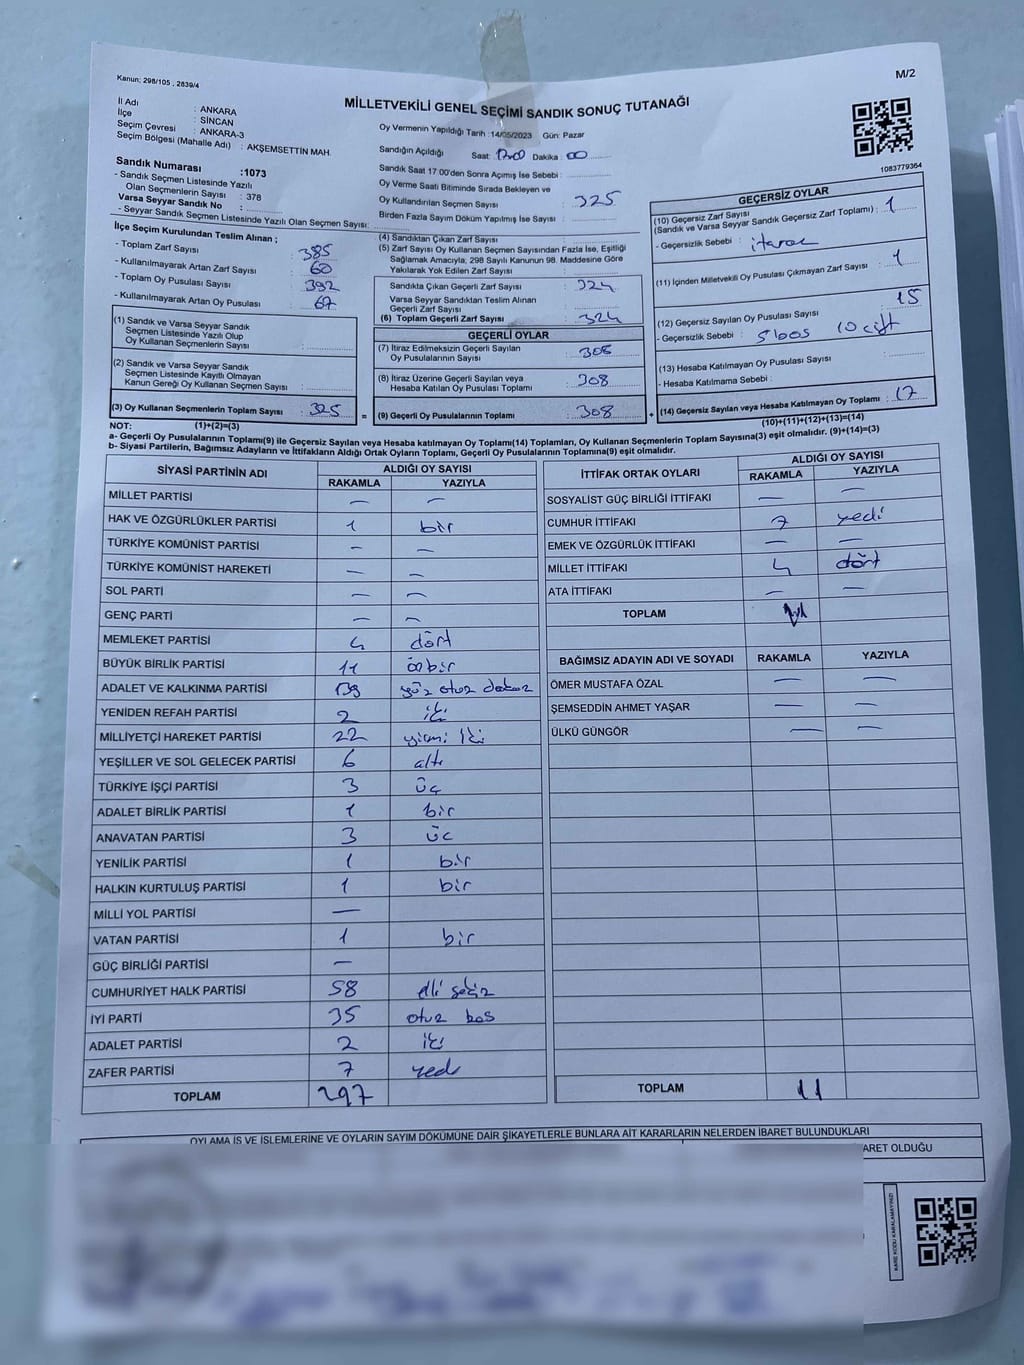 Kanun: 298/105 , 2839/4
M/2
MİLLETVEKİLİ GENEL SEÇİMİ SANDIK SONUÇ TUTANAĞI
İl Adı : ANKARA
İlçe : SİNCAN
Seçim Çevresi : ANKARA-3
Seçim Bölgesi (Mahalle Adı) : AKŞEMSETTİN MAH.
Sandık Numarası :1073
- Sandık Seçmen Listesinde Yazılı
Olan Seçmenlerin Sayısı : 378
Varsa Seyyar Sandık No :
- Seyyar Sandık Seçmen Listesinde Yazılı Olan Seçmen Sayısı:
Oy Vermenin Yapıldığı Tarih :14/05/2023 Gün: Pazar
Sandığın Açıldığı Saat: 17:00 Dakika: 00
Sandık Saat 17 00'den Sonra Açımış İse Sebebi :
Oy Verme Saati Bitiminde Sırada Bekleyen ve
Oy Kullandırılan Seçmen Sayısı : 325
Birden Fazla Sayım Döküm Yapılmış İse Sayısı :
1083779364
İlçe Seçim Kurulundan Teslim Alınan ;
- Toplam Zarf Sayısı : 385
- Kullanılmayarak Artan Zarf Sayısı : 60
- Toplam Oy Pusulası Sayısı : 392
- Kullanılmayarak Artan Oy Pusulası : 67
(1) Sandık ve Varsa Seyyar Sandık
Seçmen Listesinde Yazılı Olup
Oy Kullanan Seçmenlerin Sayısı :
(2) Sandık ve Varsa Seyyar Sandık
Seçmen Listesinde Kayıtlı Olmayan
Kanun Gereği Oy Kullanan Seçmen Sayısı :
(3) Oy Kullanan Seçmenlerin Toplam Sayısı : 325
=
(4) Sandıktan Çıkan Zarf Sayısı :
(5) Zarf Sayısı Oy Kullanan Seçmen Sayısından Fazla İse, Eşitliği
Sağlamak Amacıyla, 298 Sayılı Kanunun 98. Maddesine Göre
Yakılarak Yok Edilen Zarf Sayısı :
Sandıkta Çıkan Geçerli Zarf Sayısı : 324
Varsa Seyyar Sandıktan Teslim Alınan
Geçerli Zarf Sayısı :
(6) Toplam Geçerli Zarf Sayısı : 324
GEÇERLİ OYLAR
(7) İtiraz Edilmeksizin Geçerli Sayılan
Oy Pusulalarının Sayısı : 308
(8) İtiraz Üzerine Geçerli Sayılan veya
Hesaba Katılan Oy Pusulası Toplamı : 308
(9) Geçerli Oy Pusulalarının Toplamı : 308
+
GEÇERSİZ OYLAR
(10) Geçersiz Zarf Sayısı
(Sandık ve Varsa Seyyar Sandık Geçersiz Zarf Toplamı) : 1
- Geçersizlik Sebebi :
(11) İçinden Milletvekili Oy Pusulası Çıkmayan Zarf Sayısı : 1
(12) Geçersiz Sayılan Oy Pusulası Sayısı : 15
- Geçersizlik Sebebi : 5 boş 10 çift
(13) Hesaba Katılmayan Oy Pusulası Sayısı :
- Hesaba Katılmama Sebebi :
(14) Geçersiz Sayılan veya Hesaba Katılmayan Oy Toplamı : 17
NOT: (1)+(2)=(3)
(10)+(11)+(12)+(13)=(14)
a- Geçerli Oy Pusulalarının Toplamı(9) ile Geçersiz Sayılan veya Hesaba katılmayan Oy Toplamı(14) Toplamları, Oy Kullanan Seçmenlerin Toplam Sayısına(3) eşit olmalıdır. (9)+(14)=(3)
b- Siyasi Partilerin, Bağımsız Adayların ve İttifakların Aldığı Ortak Oyların Toplamı, Geçerli Oy Pusulalarının Toplamına(9) eşit olmalıdır.
SİYASİ PARTİNİN ADI ALDIĞI OY SAYISI
RAKAMLA YAZIYLA
MİLLET PARTİSİ — —
HAK VE ÖZGÜRLÜKLER PARTİSİ 1 bir
TÜRKİYE KOMÜNİST PARTİSİ — —
TÜRKİYE KOMÜNİST HAREKETİ — —
SOL PARTİ — —
GENÇ PARTİ — —
MEMLEKET PARTİSİ 4 dört
BÜYÜK BİRLİK PARTİSİ 11 onbir
ADALET VE KALKINMA PARTİSİ 139 yüz otuz dokuz
YENİDEN REFAH PARTİSİ 2 iki
MİLLİYETÇİ HAREKET PARTİSİ 22 yirmi iki
YEŞİLLER VE SOL GELECEK PARTİSİ 6 altı
TÜRKİYE İŞÇİ PARTİSİ 3 üç
ADALET BİRLİK PARTİSİ 1 bir
ANAVATAN PARTİSİ 3 üc
YENİLİK PARTİSİ 1 bir
HALKIN KURTULUŞ PARTİSİ 1 bir
MİLLİ YOL PARTİSİ —
VATAN PARTİSİ 1 bir
GÜÇ BİRLİĞİ PARTİSİ —
CUMHURİYET HALK PARTİSİ 58 elli sekiz
İYİ PARTİ 35 otuz beş
ADALET PARTİSİ 2 iki
ZAFER PARTİSİ 7 yedi
TOPLAM 297
İTTİFAK ORTAK OYLARI ALDIĞI OY SAYISI
RAKAMLA YAZIYLA
SOSYALİST GÜÇ BİRLİĞİ İTTİFAKI — —
CUMHUR İTTİFAKI 7 yedi
EMEK VE ÖZGÜRLÜK İTTİFAKI — —
MİLLET İTTİFAKI 4 dört
ATA İTTİFAKI — —
TOPLAM
BAĞIMSIZ ADAYIN ADI VE SOYADI RAKAMLA YAZIYLA
ÖMER MUSTAFA ÖZAL — —
ŞEMSEDDİN AHMET YAŞAR — —
ÜLKÜ GÜNGÖR — —
TOPLAM 11
OYLAMA İŞ VE İŞLEMLERİNE VE OYLARIN SAYIM DÖKÜMÜNE DAİR ŞİKAYETLERLE BUNLARA AİT KARARLARIN NELERDEN İBARET BULUNDUKLARI
ARET OLDUĞU
KARE KODU KARALAMAYINIZ!